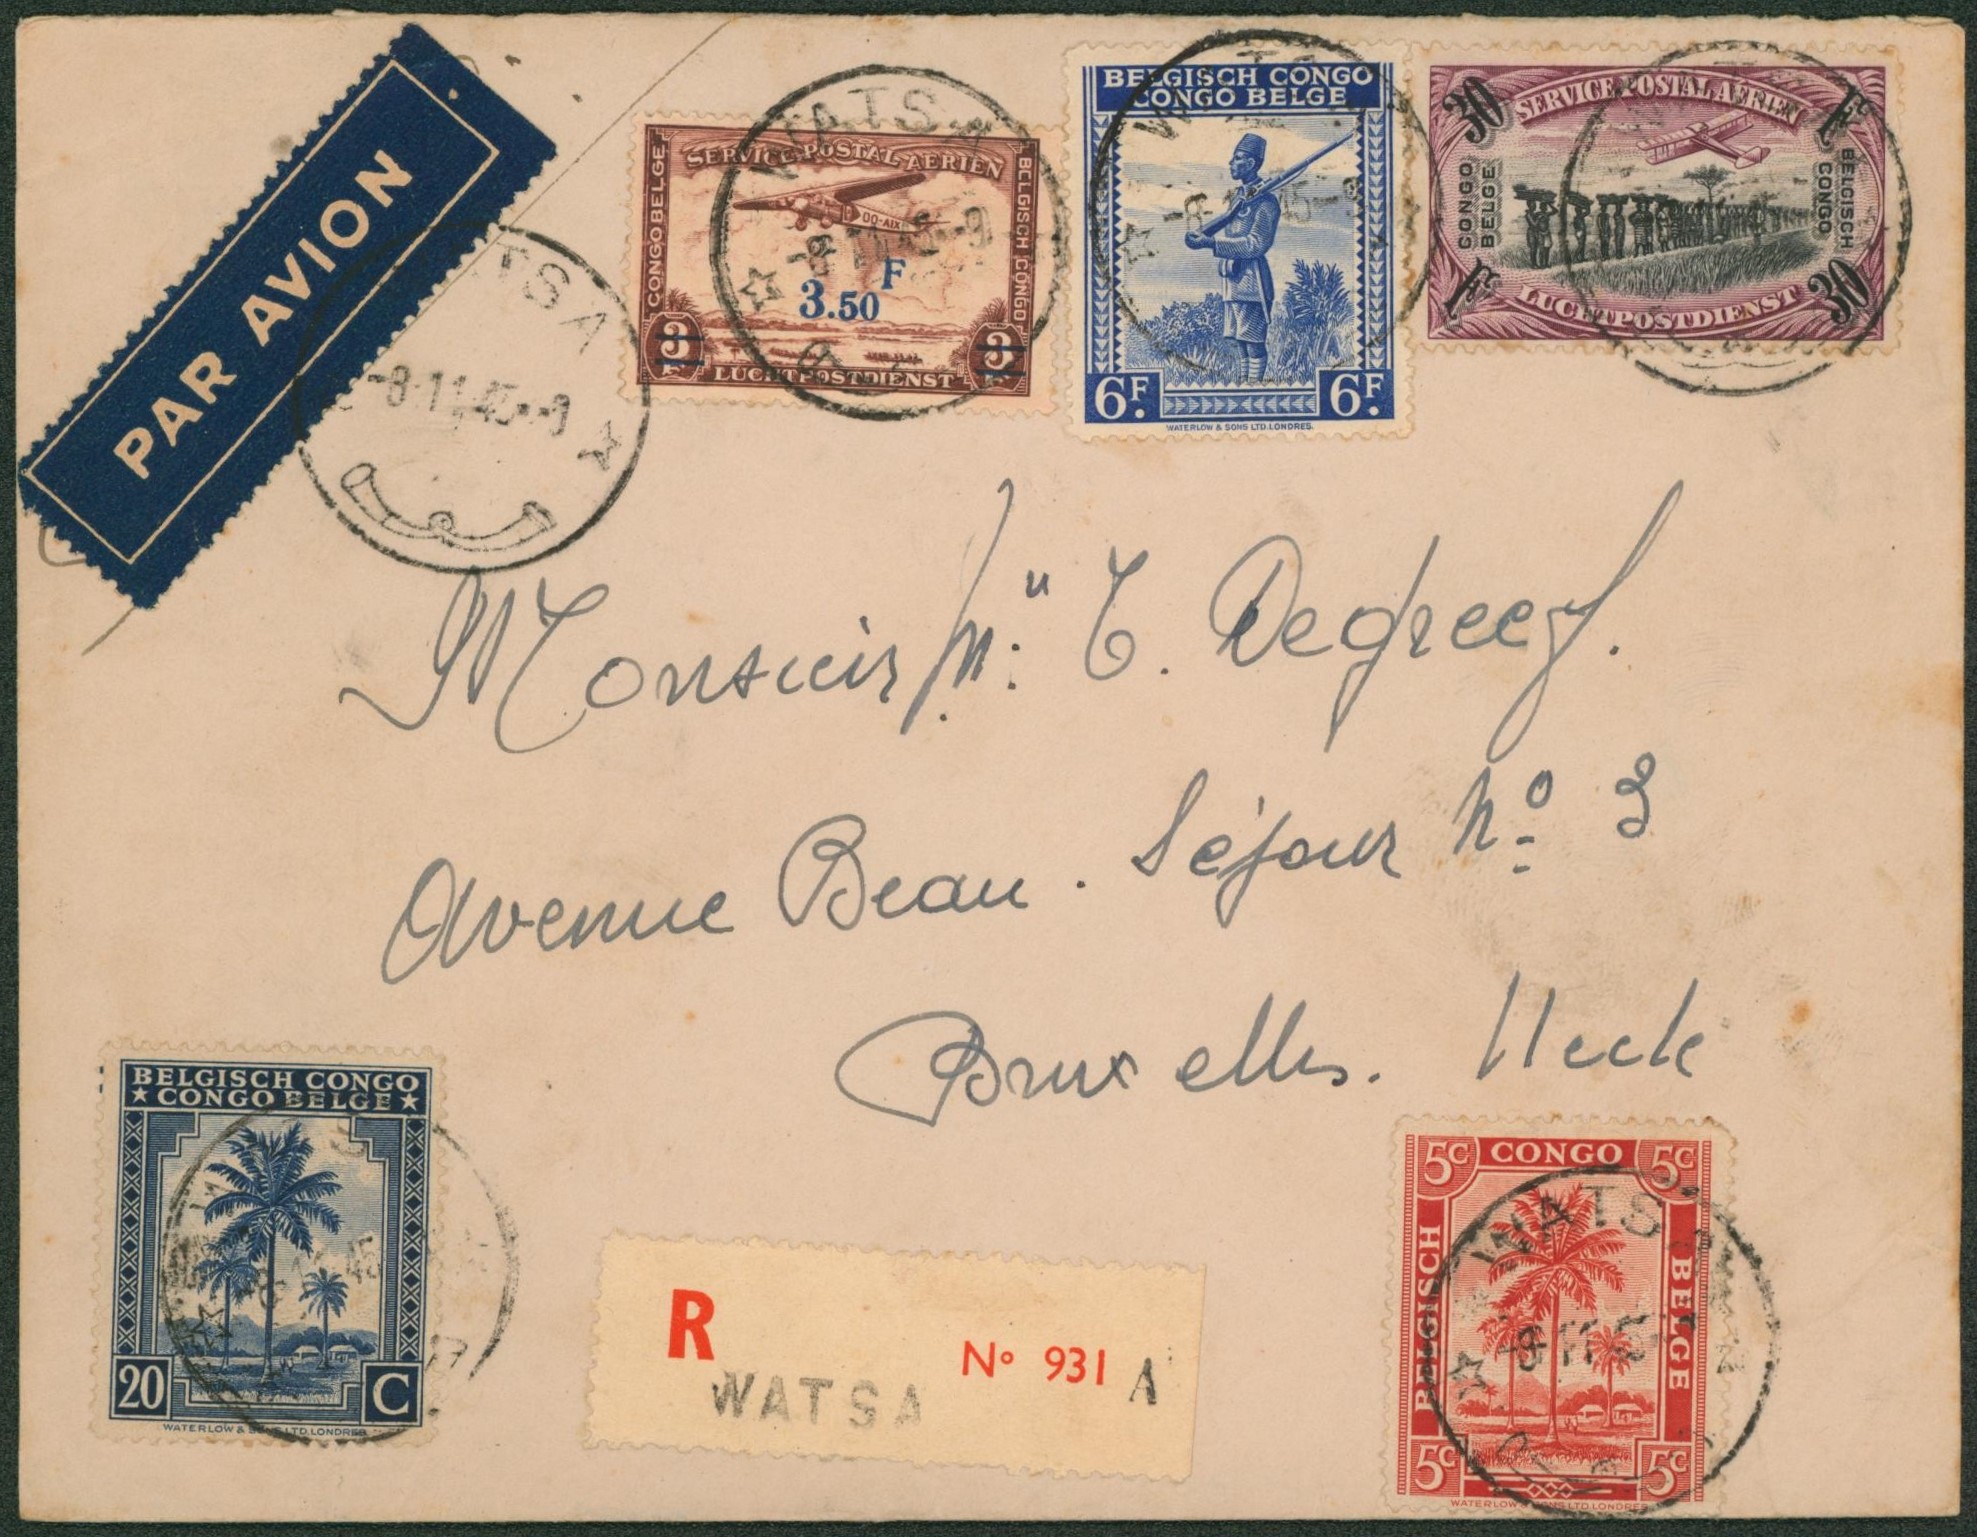 PAR AVION
WATSA
-8.11.45-9
SERVICE POSTAL AERIEN
CONGO BELGE
BELGISCH CONGO
OO-AIX
3.50 F
3 F
3 F
LUCHTPOSTDIENST
WATSA
-8.11.45-9
BELGISCH CONGO
CONGO BELGE
6F. 6F.
WATERLOW & SONS LTD. LONDRES.
30 1F
SERVICE POSTAL AERIEN
CONGO BELGE
BELGISCH CONGO
1F 30
LUCHTPOSTDIENST
Monsieur Degreef.
Avenue Beau. Séjour No 3
Bruxelles. Uccle
BELGISCH CONGO
★ CONGO BELGE ★
20 C
WATERLOW & SONS LTD. LONDRES
R
No 931 A
WATSA
5c CONGO 5c
BELGISCH
BELGE
WATSA
5c 5c
WATERLOW & SONS LTD. LONDRES